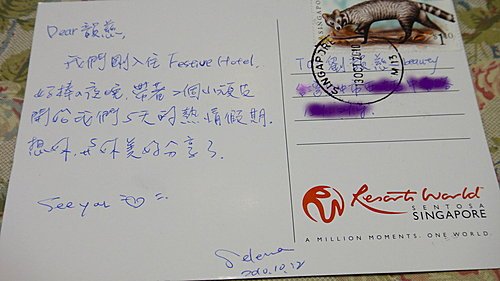 Dear 韻慈,
我們剛入住 Festive Hotel.
好棒的夜晚,帶著2個小頑皮
開始我們5天的熱情假期.
想妳,與妳美好分享了
See you
Selena
2010.10.12
SINGAPORE
1.10
SINGAPORE
To: 劉韻慈
Resorts World
SENTOSA
SINGAPORE
A MILLION MOMENTS. ONE WORLD.